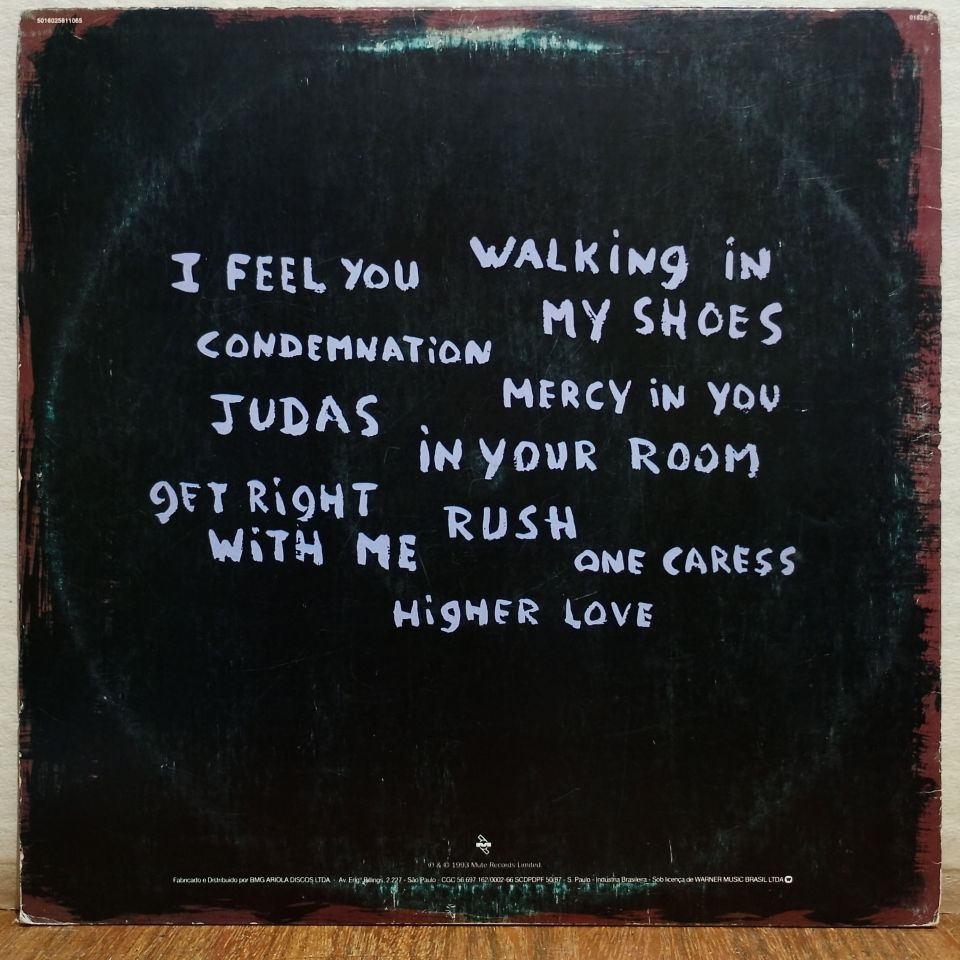 5016025611065
I FEEL YOU
WALKiNg iN
MY SHOES
CONDEMNATiON
MERCY iN YOU
JUDAS
iN YOUR ROOM
gET RigHT
WiTH ME
RUSH
ONE CARESS
HigHER LOVE
℗ & © 1993 Mute Records Limited.
Fabricado e Distribuído por BMG ARIOLA DISCOS LTDA. - Av. Engº Billings, 2.227 - São Paulo - CGC 56.697.162/0002-66 SCDPDPF 50/87 - S. Paulo - Indústria Brasileira - Sob licença de WARNER MUSIC BRASIL LTDA